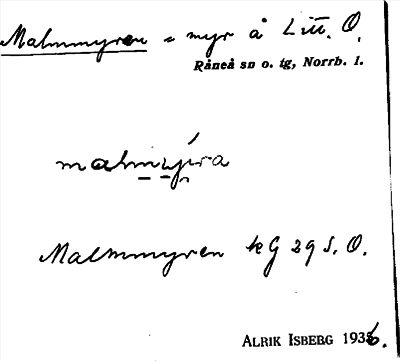 Malmmyren = myr å Litt. O.
Råneå sn o. tg, Norrb. l.
malmmýra
Malmmyren kG 29 S. O.
ALRIK ISBERG 1936.